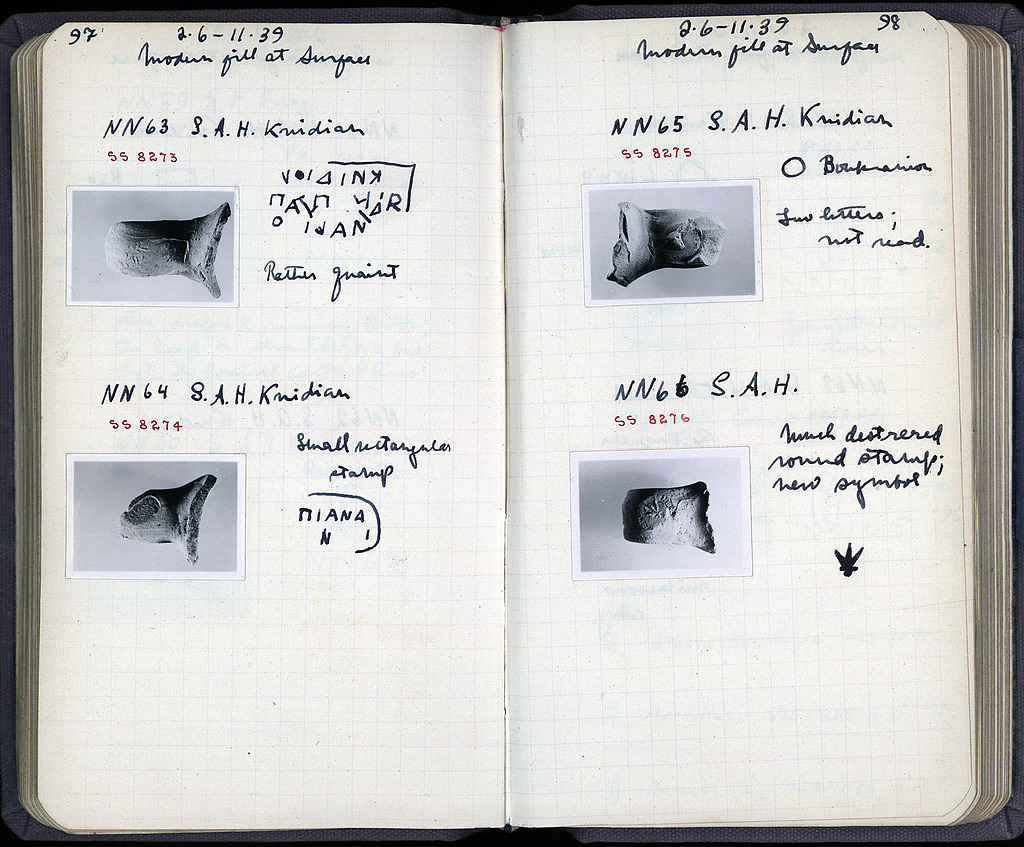 97 2·6-11·39
Modern fill at Surface
NN63 S.A.H. Knidian
SS 8273
Rather quaint
NN64 S.A.H. Knidian
SS 8274
Small rectangular
stamp
ΠΙΑΝΑ
Ν Ι
2·6-11·39 98
Modern fill at Surface
NN65 S.A.H. Knidian
SS 8275
Boukranion
Few letters;
not read.
NN66 S.A.H.
SS 8276
Much
round stamp;
new symbol